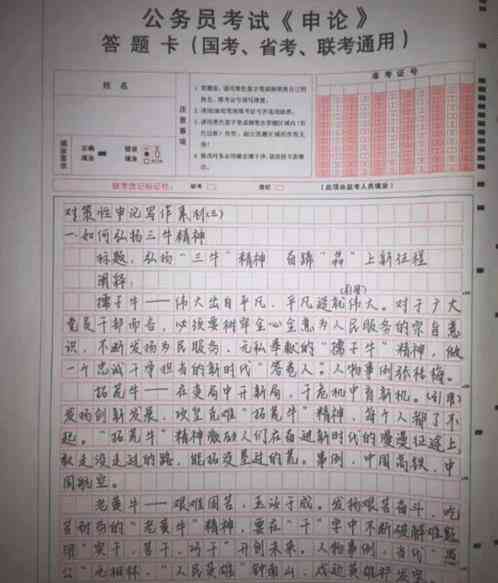 公务员考试《申论》
答题卡(国考、省考、联考通用)
姓名
准考证号
注意事项
填涂要求
正确填涂
错误填涂
缺考标记
(此项由监考人员填涂)
对策性申论写作系列(三)
一.如何弘扬三牛精神
标题:弘扬"三牛"精神 奋蹄"犇"上新征程
阐释:
(引用)
孺子牛——伟大出自平凡,平凡造就伟大。对于广大
党员干部而言,必须要树牢全心全意为人民服务的宗旨意
识,不断发扬为民服务、无私奉献的"孺子牛"精神,做
一个忠诚干净担当的新时代"答卷人"。人物事例张桂梅。
拓荒牛——在变局中开新局,于危机中育新机。(引用)
发扬创新发展、攻坚克难"拓荒牛"精神,每个人都了不
起。"拓荒牛"精神激励人们在奋进新时代的漫漫征途上,
敢走没走过的路,能拓没垦过的荒。事例,中国高铁,中
国航空。
老黄牛——艰难困苦,玉汝于成。发扬艰苦奋斗、吃
苦耐劳的"老黄牛"精神,要在"干"字中不断破解难题
用"实干,苦干,巧干"开创未来。人物事例,当代"愚
公"毛相林,"人民英雄"钟南山,